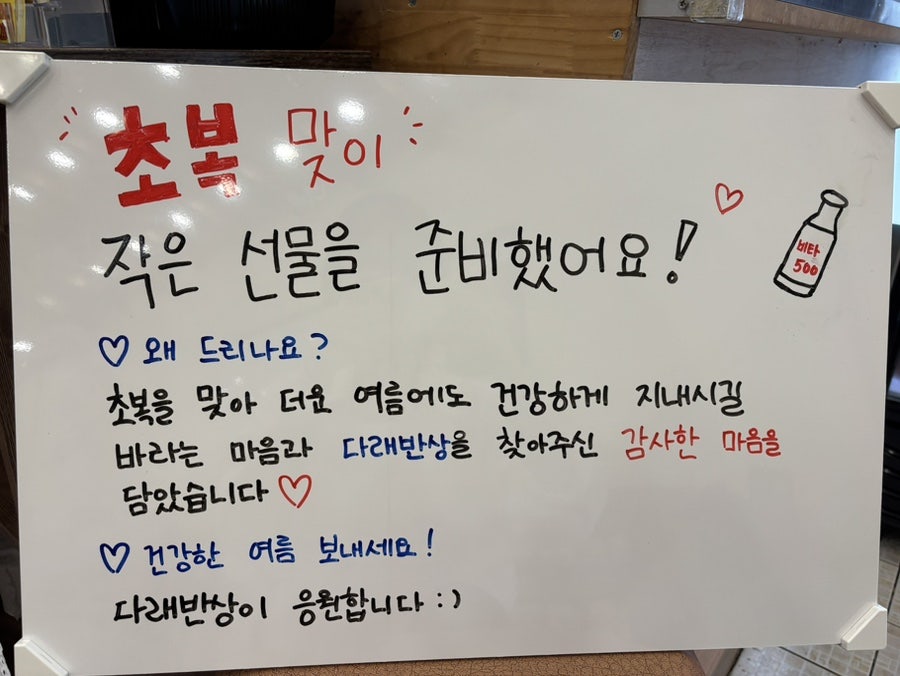 초복 맞이
작은 선물을 준비했어요!
비타
500
♡ 왜 드리나요?
초복을 맞아 더요 여름에도 건강하게 지내시길
바라는 마음과 다래반상을 찾아주신 감사한 마음을
담았습니다♡
♡ 건강한 여름 보내세요!
다래반상이 응원합니다 :)